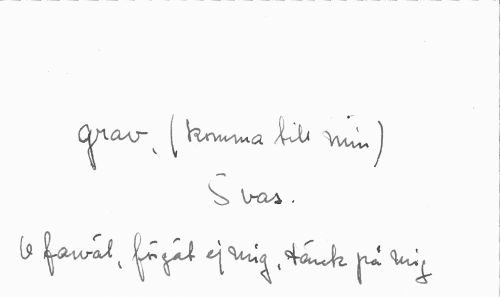 grav, (komma till min)
S vas.
O farväl, förgät ej mig, tänck på mig